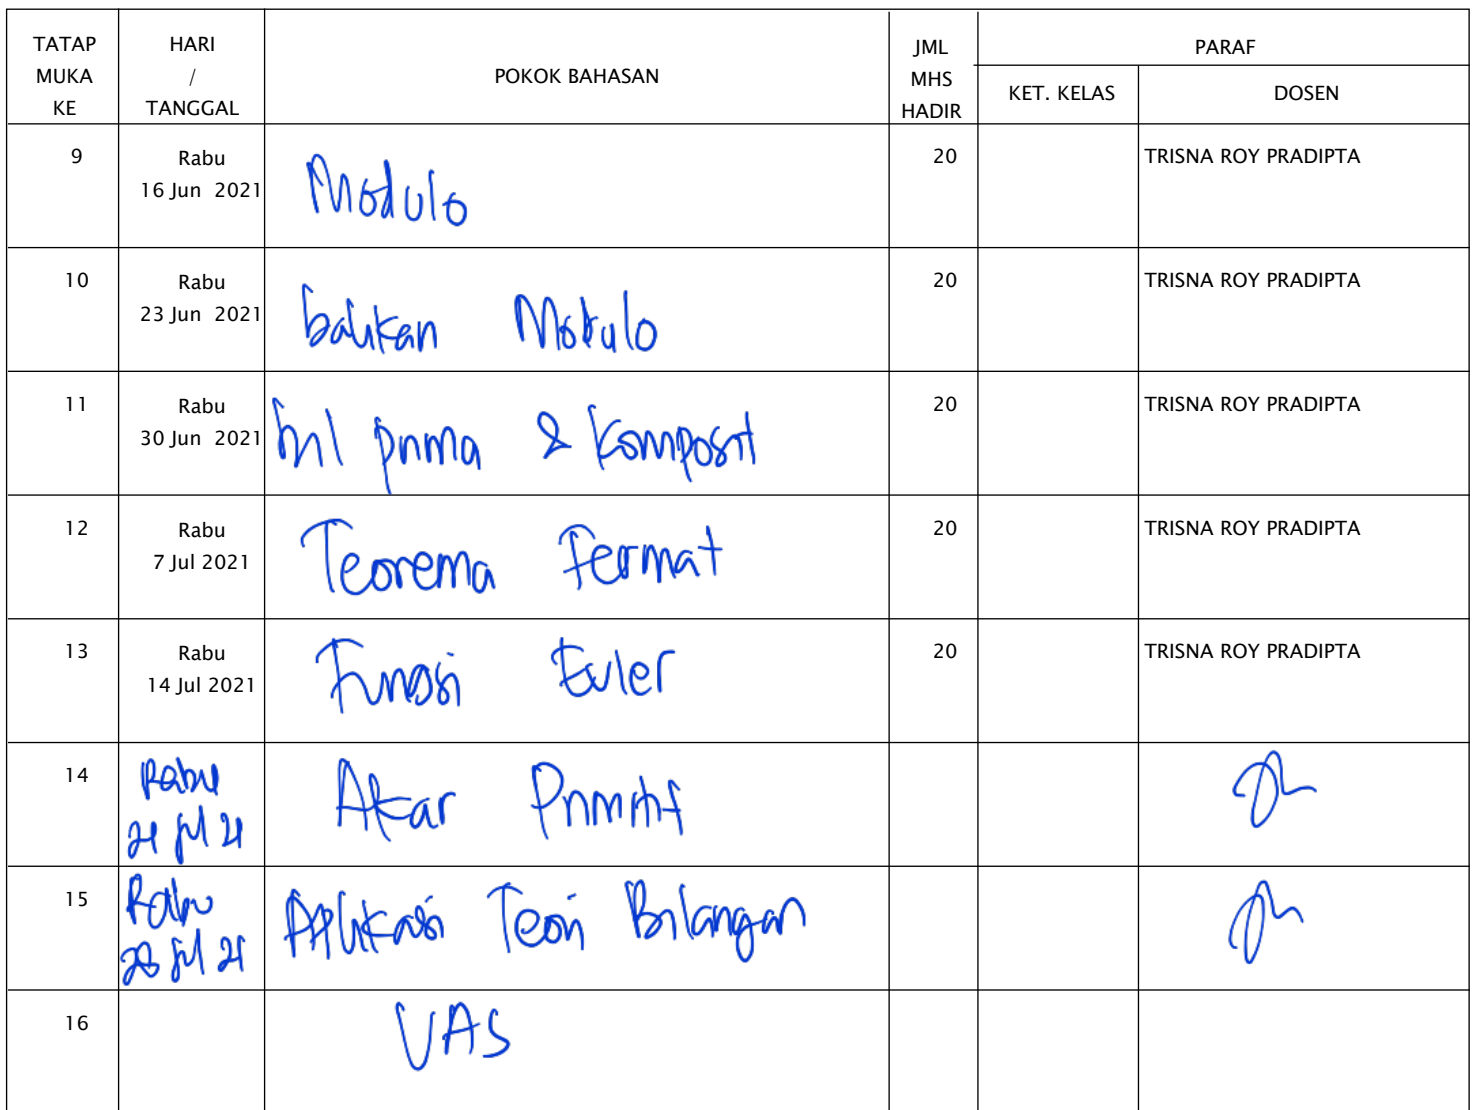 TATAP MUKA KE HARI / TANGGAL POKOK BAHASAN JML MHS HADIR PARAF
KET. KELAS DOSEN
9 Rabu 16 Jun 2021 Modulo 20 TRISNA ROY PRADIPTA
10 Rabu 23 Jun 2021 balikan Modulo 20 TRISNA ROY PRADIPTA
11 Rabu 30 Jun 2021 bil prima & komposit 20 TRISNA ROY PRADIPTA
12 Rabu 7 Jul 2021 Teorema Fermat 20 TRISNA ROY PRADIPTA
13 Rabu 14 Jul 2021 Fungsi Euler 20 TRISNA ROY PRADIPTA
14 Rabu 21 Jul 21 Akar Primitif
15 Rabu 28 Jul 21 Aplikasi Teori Bilangan
16 UAS